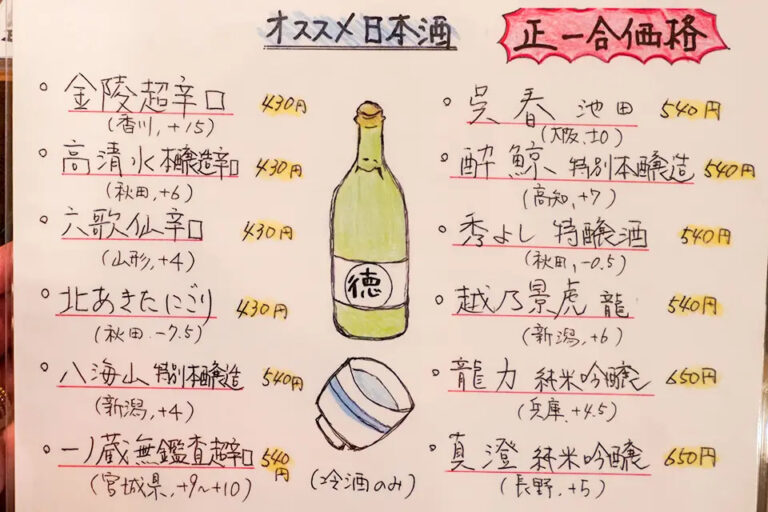 オススメ日本酒
正一合価格
・金陵超辛口 430円
(香川,+15)
・高清水本醸造辛口 430円
(秋田,+6)
・六歌仙辛口 430円
(山形,+4)
・北あきたにごり 430円
(秋田.-7.5)
・八海山 特別本醸造 540円
(新潟,+4)
・一ノ蔵無鑑査超辛口 540円
(宮城県,+9~+10)
徳
(冷酒のみ)
・呉春 池田 540円
(大阪,±0)
・酔鯨、特別本醸造 540円
(高知,+7)
・秀よし 特醸酒 540円
(秋田,-0.5)
・越乃景虎 龍 540円
(新潟,+6)
・龍力 純米吟醸 650円
(兵庫.+4.5)
・真澄 純米吟醸 650円
(長野,+5)